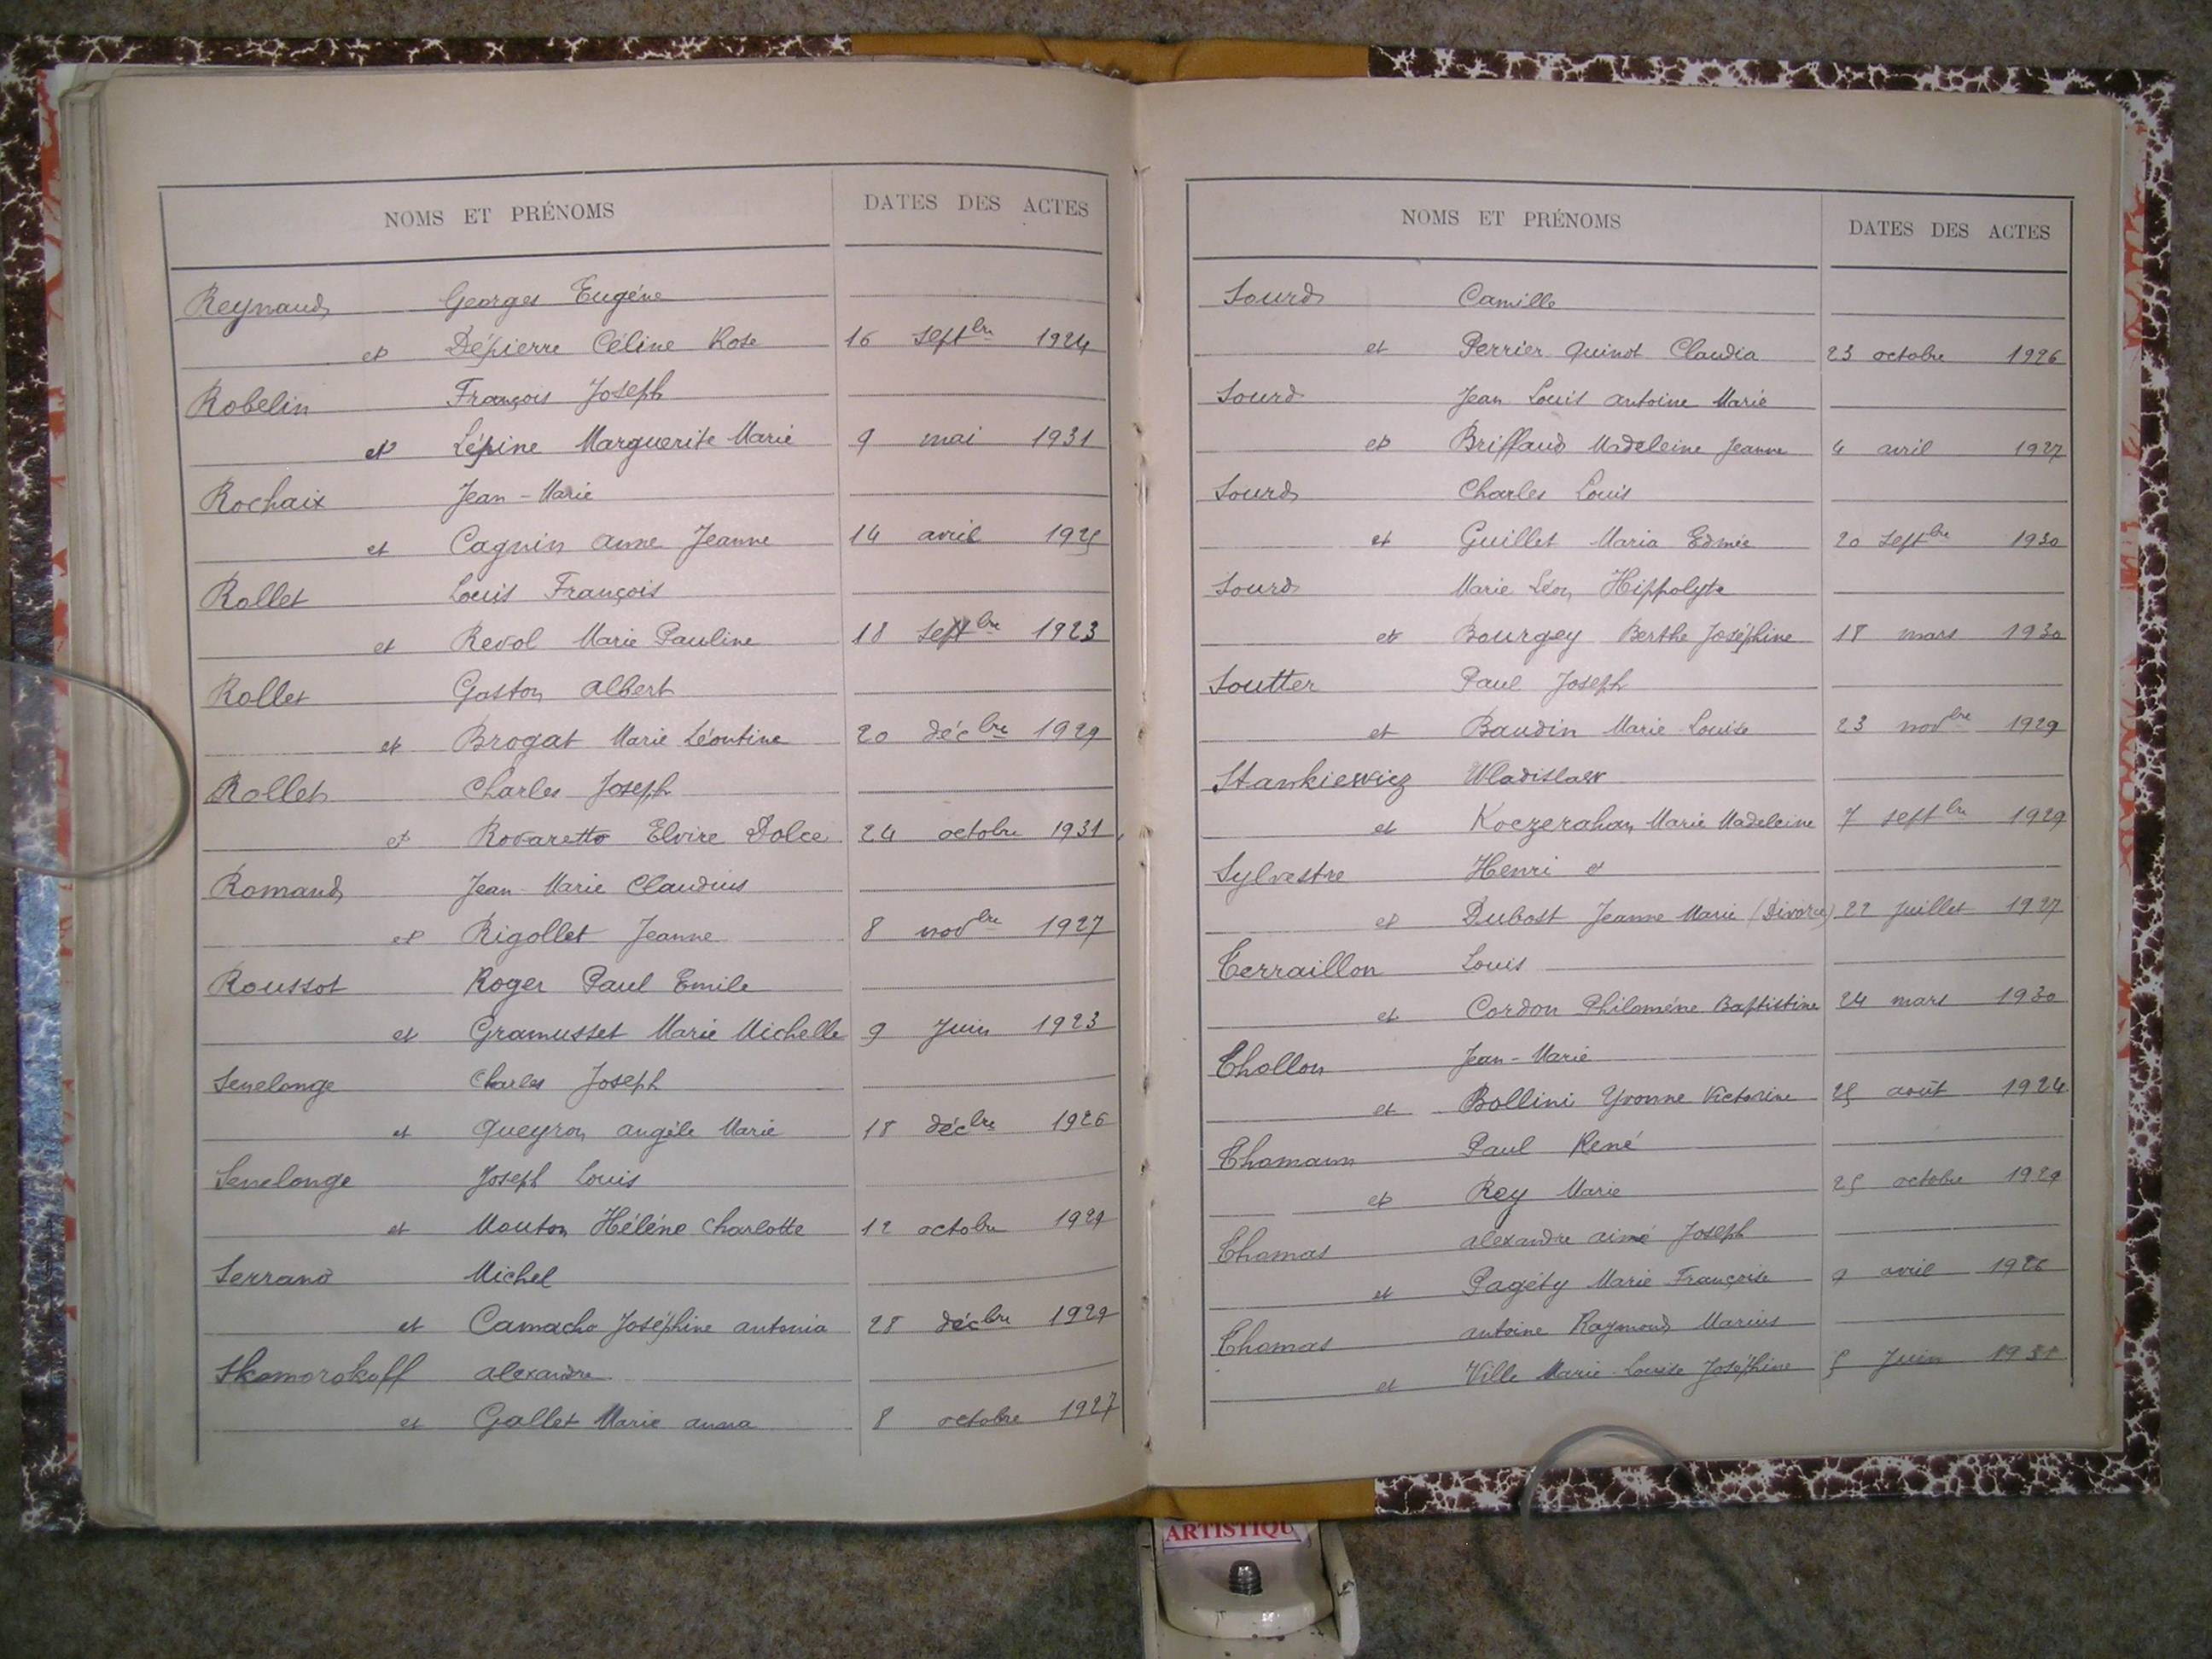 NOMS ET PRÉNOMS DATES DES ACTES
Reynaud Georges Eugène
et Dépierre Céline Rose 16 septbre 1924
Robelin François Joseph
et Lépine Marguerite Marie 9 mai 1931
Rochaix Jean-Marie
et Cagnin Anne Jeanne 14 avril 1925
Rollet Louis François
et Revol Marie Pauline 18 septbre 1923
Rollet Gaston Albert
et Brogat Marie Léontine 20 décbre 1929
Rollet Charles Joseph
et Rovaretto Elvire Dolce 24 octobre 1931
Romand Jean-Marie Claudius
et Rigollet Jeanne 8 novbre 1927
Roussot Roger Paul Emile
et Gramusset Marie Michelle 9 Juin 1923
Senelonge Charles Joseph
et Queyron Angèle Marie 18 décbre 1926
Senelonge Joseph Louis
et Mouton Hélène Charlotte 12 octobre 1929
Serrano Michel
et Camacho Joséphine Antonia 28 décbre 1929
Skomorokoff Alexandre
et Gallet Marie Anna 8 octobre 1927
NOMS ET PRÉNOMS DATES DES ACTES
Sourd Camille
et Perrier Quinot Claudia 23 octobre 1926
Sourd Jean Louis Antoine Marie
et Briffaud Madeleine Jeanne 4 avril 1927
Sourd Charles Louis
et Guillet Maria Edmée 20 septbre 1930
Sourd Marie Léon Hippolyte
et Bourgey Berthe Joséphine 18 mars 1930
Soutter Paul Joseph
et Baudin Marie-Louise 23 novbre 1929
Stankiewicz Wladislaw
et Koczerahan Marie Madeleine 7 septbre 1929
Sylvestre Henri et
et Dubost Jeanne Marie (Divorce) 22 Juillet 1927
Terraillon Louis
et Cordon Philomène Baptistine 24 mars 1930
Thollon Jean-Marie
et Bollini Yvonne Victorine 25 août 1924
Thomann Paul René
et Rey Marie 25 octobre 1929
Thomas Alexandre Aimé Joseph
et Pagéty Marie Françoise 9 avril 1926
Thomas Antoine Raymond Marius
et Ville Marie-Louise Joséphine 5 Juin 1931
ARTISTIQU